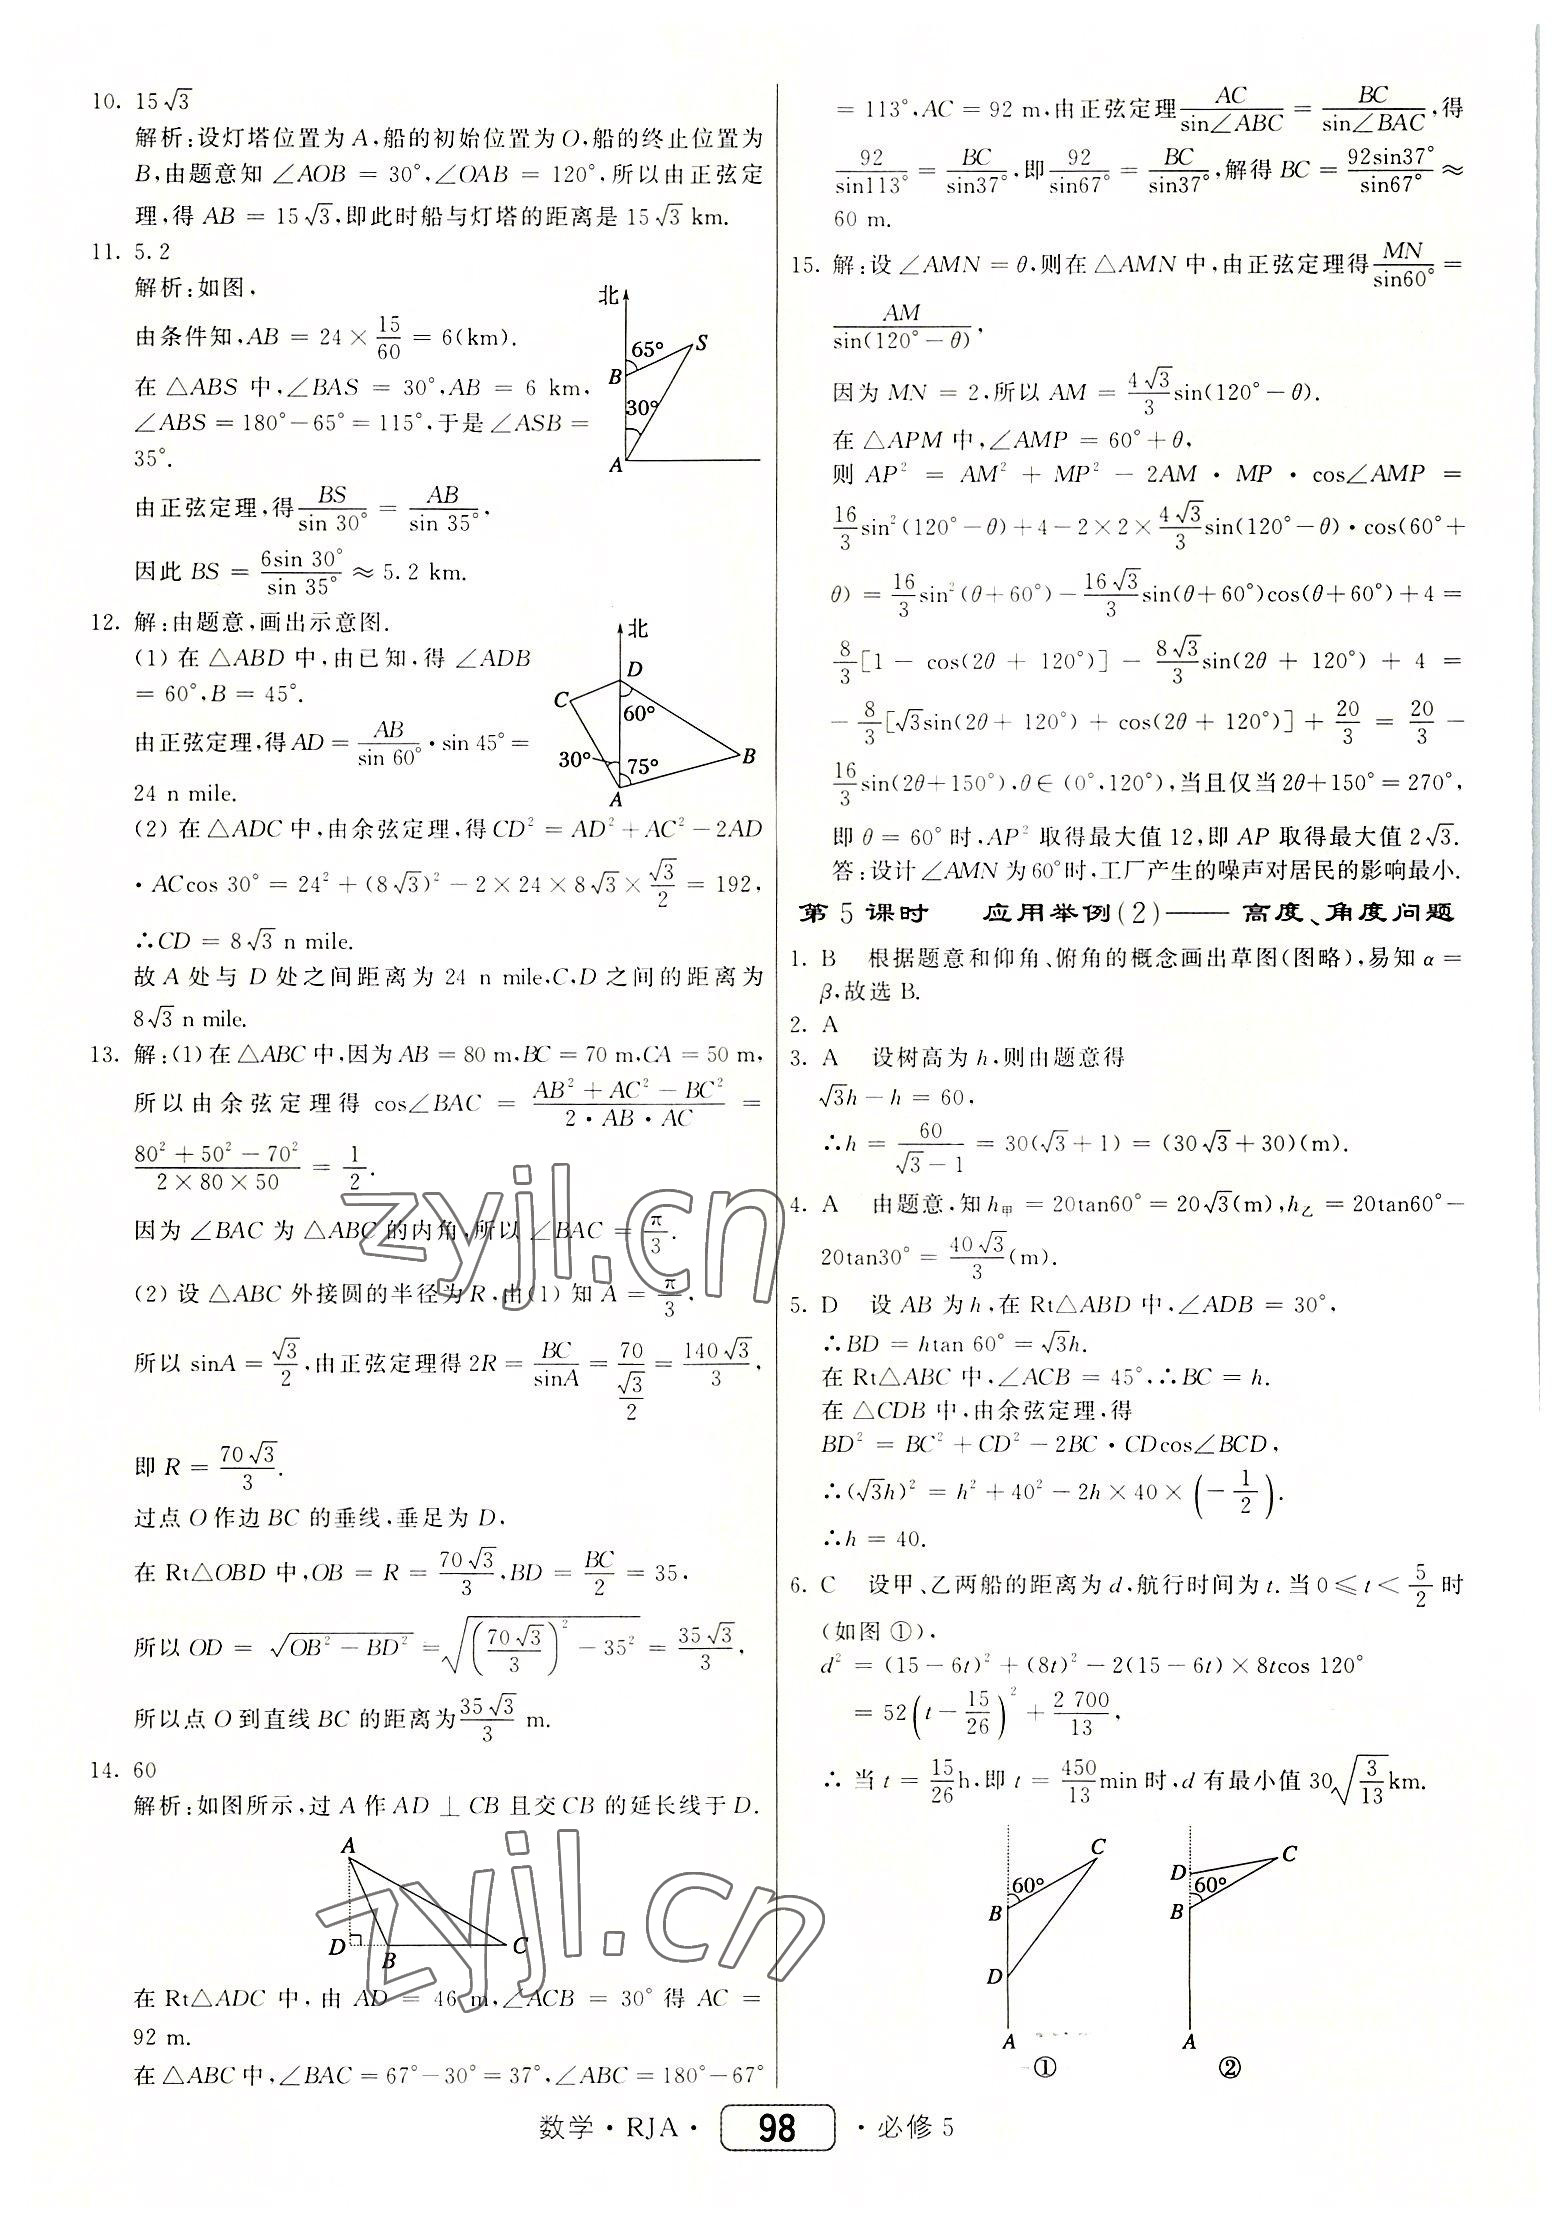 10. 15√3
解析:设灯塔位置为 A,船的初始位置为 O,船的终止位置为
B,由题意知 ∠AOB = 30°,∠OAB = 120°,所以由正弦定
理,得 AB = 15√3,即此时船与灯塔的距离是 15√3 km.
11. 5.2
解析:如图,
由条件知,AB = 24 × 15/60 = 6(km).
在 △ABS 中,∠BAS = 30°,AB = 6 km,
∠ABS = 180° − 65° = 115°,于是 ∠ASB =
35°.
由正弦定理,得 BS/sin 30° = AB/sin 35°,
因此 BS = 6sin 30°/sin 35° ≈ 5.2 km.
北
65°
S
B
30°
A
12. 解:由题意,画出示意图.
(1) 在 △ABD 中,由已知,得 ∠ADB
= 60°,B = 45°.
由正弦定理,得 AD = AB/sin 60° · sin 45° =
24 n mile.
北
D
C
60°
B
30°
75°
A
(2) 在 △ADC 中,由余弦定理,得 CD² = AD² + AC² − 2AD
· ACcos 30° = 24² + (8√3)² − 2 × 24 × 8√3 × √3/2 = 192,
∴CD = 8√3 n mile.
故 A 处与 D 处之间距离为 24 n mile,C,D 之间的距离为
8√3 n mile.
13. 解:(1) 在 △ABC 中,因为 AB = 80 m,BC = 70 m,CA = 50 m,
所以由余弦定理得 cos∠BAC = (AB² + AC² − BC²)/(2 · AB · AC) =
(80² + 50² − 70²)/(2 × 80 × 50) = 1/2.
因为 ∠BAC 为 △ABC 的内角,所以 ∠BAC = π/3.
(2) 设 △ABC 外接圆的半径为 R,由(1) 知 A = π/3,
所以 sinA = √3/2,由正弦定理得 2R = BC/sinA = 70/(√3/2) = 140√3/3,
即 R = 70√3/3.
过点 O 作边 BC 的垂线,垂足为 D,
在 Rt△OBD 中,OB = R = 70√3/3,BD = BC/2 = 35,
所以 OD = √(OB² − BD²) = √((70√3/3)² − 35²) = 35√3/3,
所以点 O 到直线 BC 的距离为 35√3/3 m.
14. 60
解析:如图所示,过 A 作 AD ⊥ CB 且交 CB 的延长线于 D.
A
D
B
C
在 Rt△ADC 中,由 AD = 46 m,∠ACB = 30° 得 AC =
92 m.
在 △ABC 中,∠BAC = 67° − 30° = 37°,∠ABC = 180° − 67°
= 113°,AC = 92 m,由正弦定理 AC/sin∠ABC = BC/sin∠BAC,得
92/sin113° = BC/sin37°,即 92/sin67° = BC/sin37°,解得 BC = 92sin37°/sin67° ≈
60 m.
15. 解:设 ∠AMN = θ,则在 △AMN 中,由正弦定理得 MN/sin60° =
AM/sin(120° − θ),
因为 MN = 2,所以 AM = 4√3/3 sin(120° − θ).
在 △APM 中,∠AMP = 60° + θ,
则 AP² = AM² + MP² − 2AM · MP · cos∠AMP =
16/3 sin²(120° − θ) + 4 − 2 × 2 × 4√3/3 sin(120° − θ) · cos(60° +
θ) = 16/3 sin²(θ + 60°) − 16√3/3 sin(θ + 60°)cos(θ + 60°) + 4 =
8/3[1 − cos(2θ + 120°)] − 8√3/3 sin(2θ + 120°) + 4 =
− 8/3[√3sin(2θ + 120°) + cos(2θ + 120°)] + 20/3 = 20/3 −
16/3 sin(2θ + 150°),θ ∈ (0°,120°),当且仅当 2θ + 150° = 270°,
即 θ = 60° 时,AP² 取得最大值 12,即 AP 取得最大值 2√3.
答:设计 ∠AMN 为 60° 时,工厂产生的噪声对居民的影响最小.
第 5 课时 应用举例(2)—— 高度、角度问题
1. B 根据题意和仰角、俯角的概念画出草图(图略),易知 α =
β,故选 B.
2. A
3. A 设树高为 h,则由题意得
√3h − h = 60,
∴h = 60/(√3 − 1) = 30(√3 + 1) = (30√3 + 30)(m).
4. A 由题意,知 h甲 = 20tan60° = 20√3(m),h乙 = 20tan60° −
20tan30° = 40√3/3(m).
5. D 设 AB 为 h,在 Rt△ABD 中,∠ADB = 30°,
∴BD = htan 60° = √3h.
在 Rt△ABC 中,∠ACB = 45°,∴BC = h.
在 △CDB 中,由余弦定理,得
BD² = BC² + CD² − 2BC · CDcos∠BCD,
∴(√3h)² = h² + 40² − 2h × 40 × (−1/2).
∴h = 40.
6. C 设甲、乙两船的距离为 d,航行时间为 t. 当 0 ⩽ t < 5/2 时
(如图 ①),
d² = (15 − 6t)² + (8t)² − 2(15 − 6t) × 8tcos 120°
= 52(t − 15/26)² + 2 700/13,
∴ 当 t = 15/26 h,即 t = 450/13 min 时,d 有最小值 30√(3/13) km.
C
60°
B
D
A
①
C
D
60°
B
A
②
zyjl.cn
zyjl.cn
数学 · RJA · 98 · 必修 5